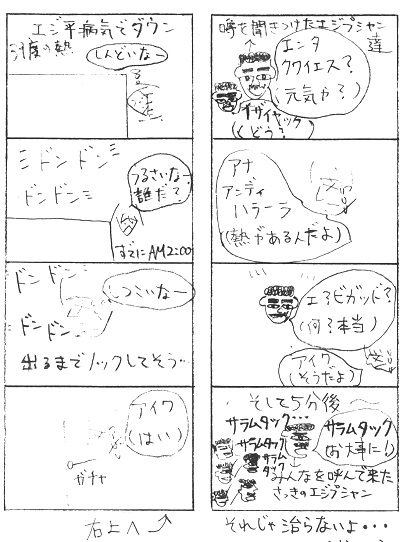 エジ平病気でダウン
39度の熱
しんどいなー
ドンドン
ドンドン
うるさいなー
誰だ?
すでにAM2:00
ドンドン
ドンドン
しつこいなー
出るまでノックしてそう…
アイワ
(はい)
ガチャ
右上へ
噂を聞きつけたエジプシャン
達
エンタ
クワイエス?
(元気か?)
イザイヤック
(どう?)
アナ
アンディ
ハラーラ
(熱があるんだよ)
エ?ビガッド?
(何?本当)
アイワ
(そうだよ)
そして5分後
サラムタック…
サラムタック
サラム
タック
サラムタック
(お大事に!)
みんなを呼んで来た
さっきのエジプシャン
それじゃ治らないよ・・・